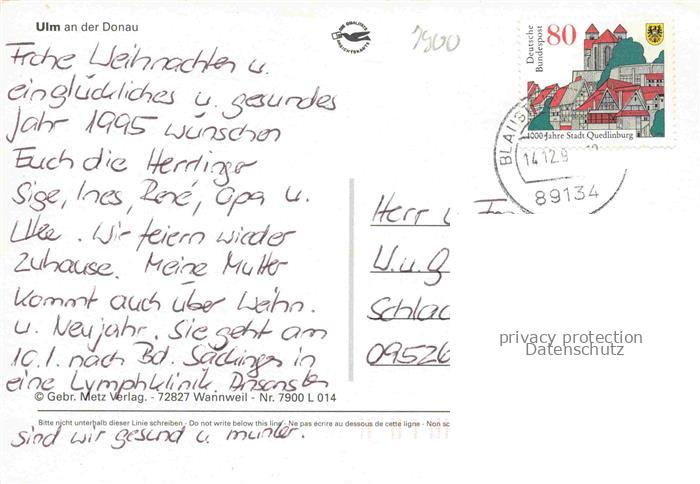 Ulm an der Donau
DIE QUALITÄTS
ANSICHTSKARTE
7900
Frohe Weihnachten u.
ein glückliches u. gesundes
Jahr 1995 wünschen
Euch die Herrlinger
Sige, Ines, René, Opa u.
Ulke. Wir feiern wieder
zuhause. Meine Mutter
kommt auch über Weihn.
u. Neujahr. Sie geht am
10.1. nach Bd. Säckingen in
eine Lymphklinik. Ansonsten
sind wir gesund u. munter.
© Gebr. Metz Verlag. - 72827 Wannweil - Nr. 7900 L 014
Bitte nicht unterhalb dieser Linie schreiben - Do not write below this line - Ne pas écrire au dessous de cette ligne - Non sc
Deutsche
Bundespost
80
1000 Jahre Stadt Quedlinburg
BLAUST
14.12.9
89134
Herr u
W. u. G
Schlac
09526
privacy protection
Datenschutz